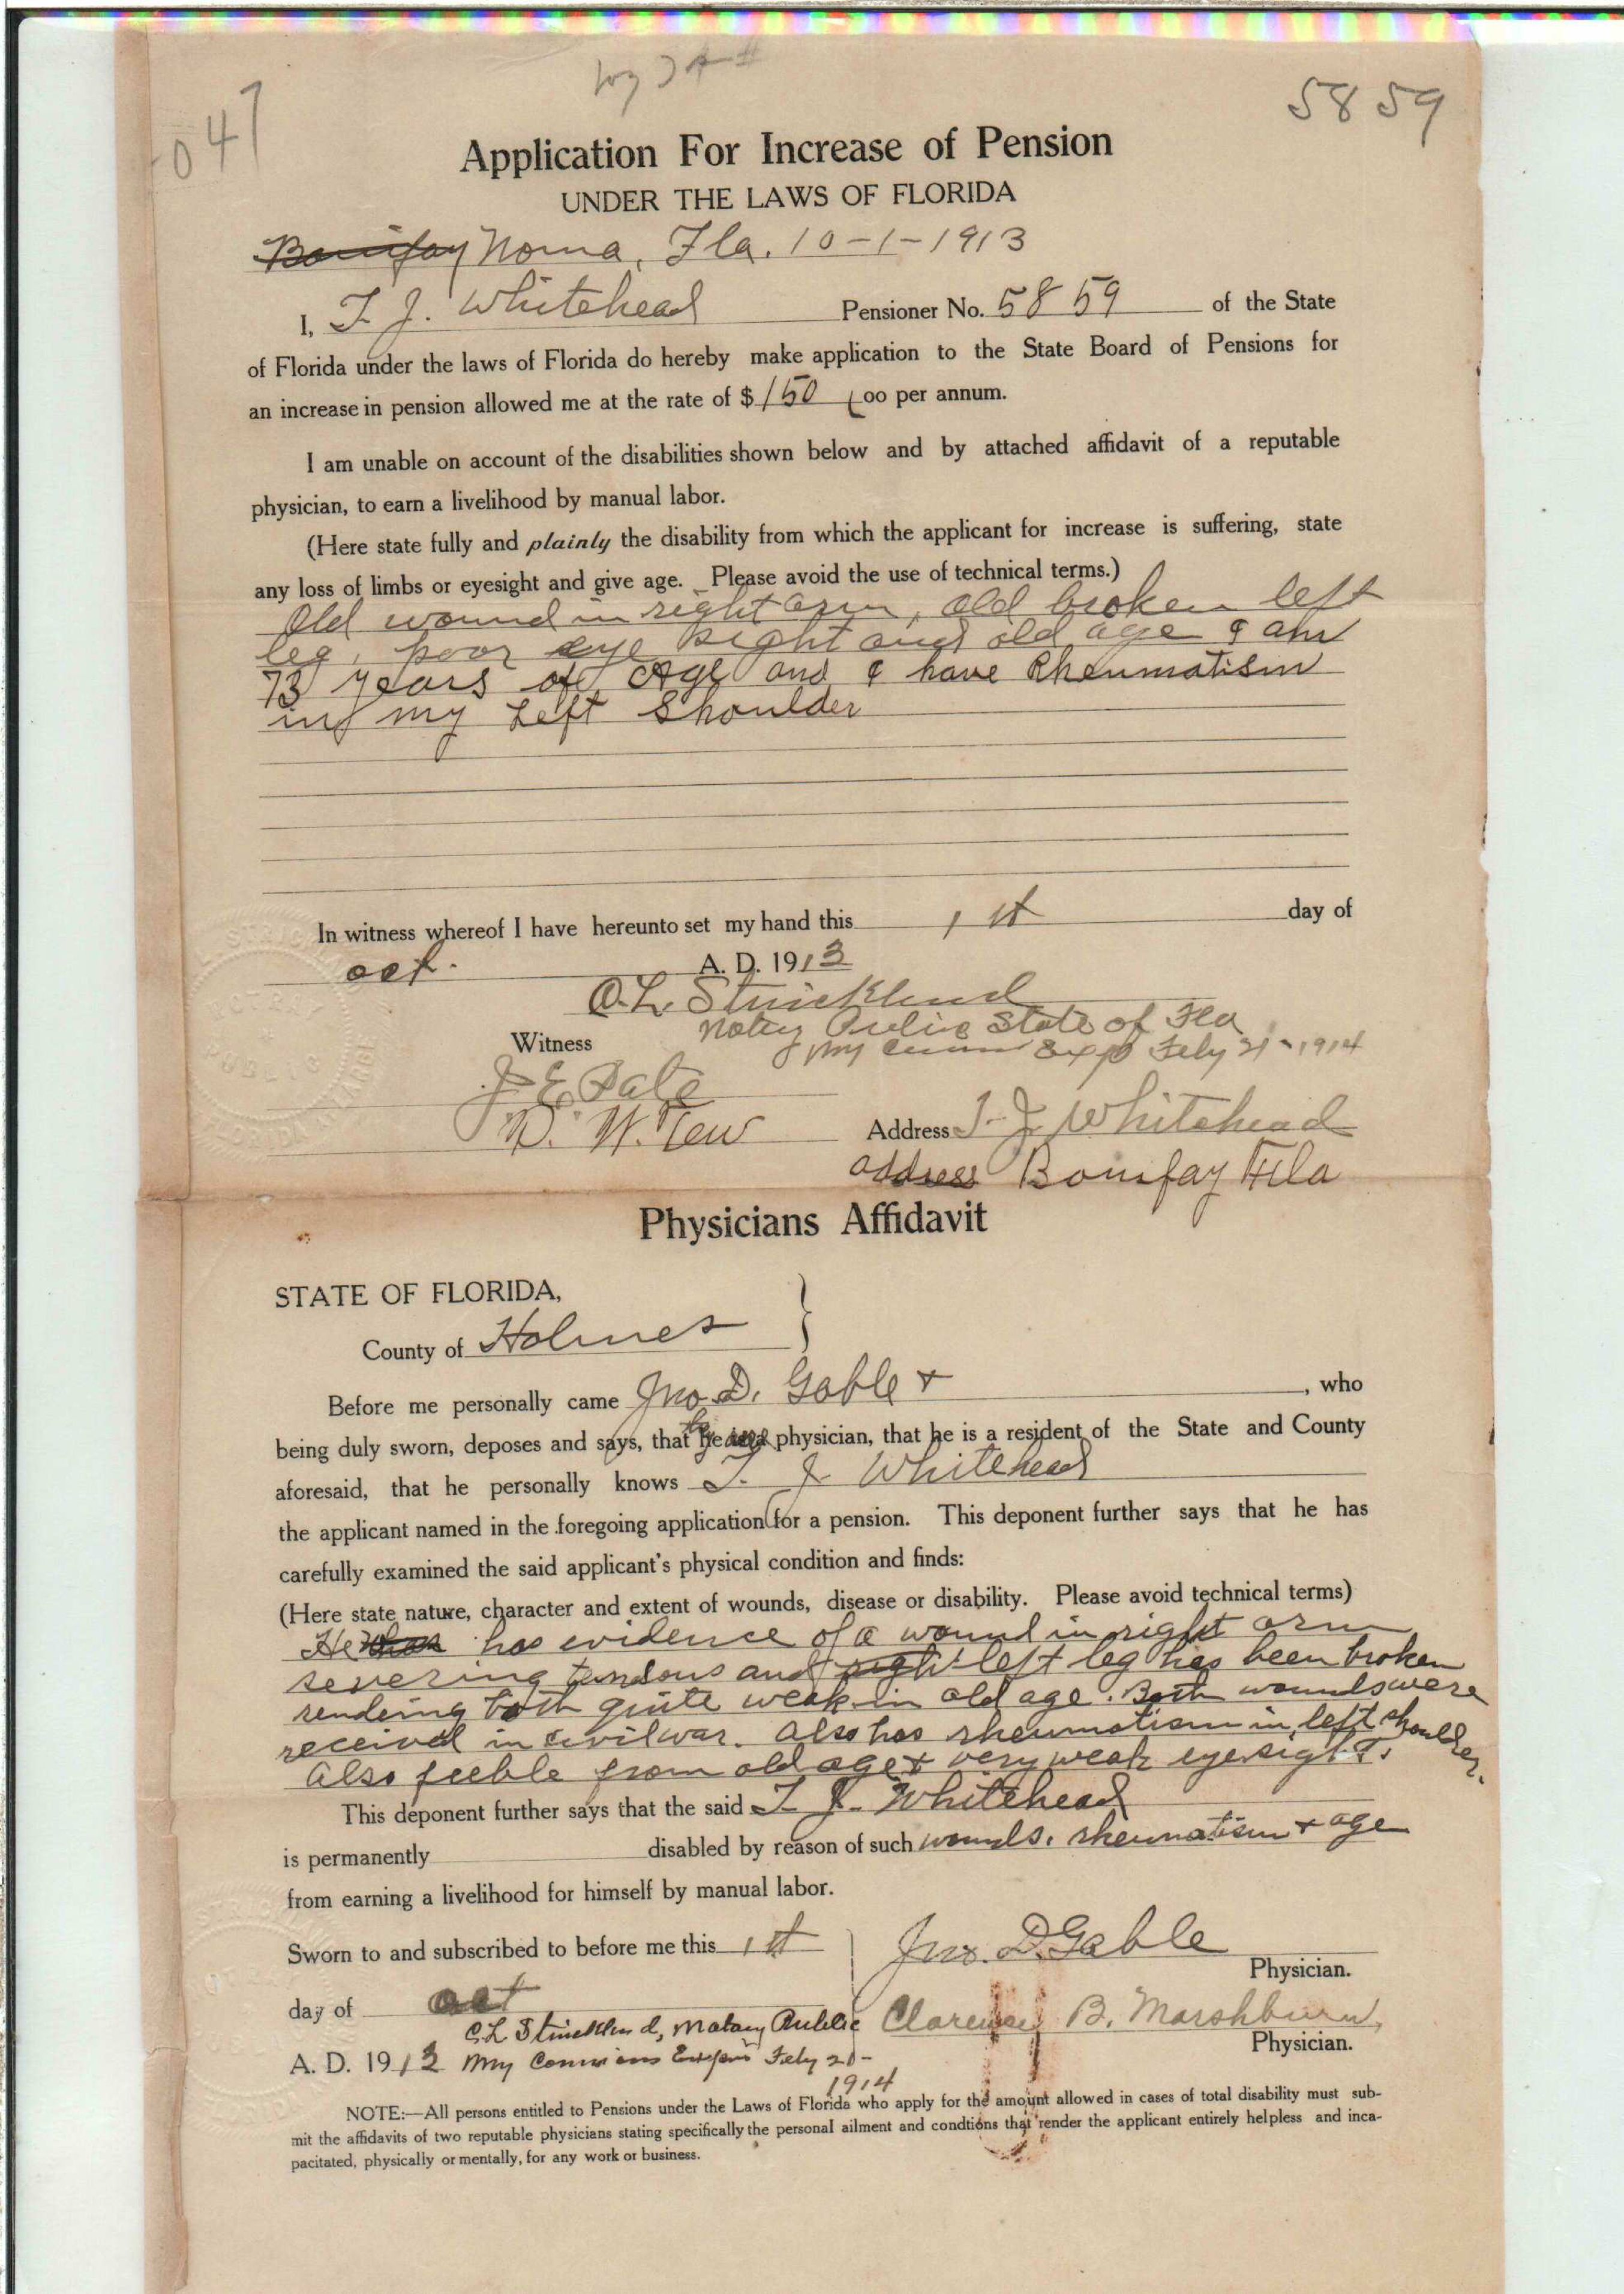 5859
047
Application For Increase of Pension
UNDER THE LAWS OF FLORIDA
Bonifay Noma, Fla. 10-1-1913
I, T. J. Whitehead Pensioner No. 5859 of the State
of Florida under the laws of Florida do hereby make application to the State Board of Pensions for
an increase in pension allowed me at the rate of $ 150 00 per annum.
I am unable on account of the disabilities shown below and by attached affidavit of a reputable
physician, to earn a livelihood by manual labor.
(Here state fully and plainly the disability from which the applicant for increase is suffering, state
any loss of limbs or eyesight and give age. Please avoid the use of technical terms.)
Old wound in right arm, old broken left
leg, poor eye sight and old age I am
73 years of Age and I have Rheumatism
in my Left Shoulder
In witness whereof I have hereunto set my hand this 1st day of
oct. A. D. 1913
C. L. Strickland
Notary Public State of Fla
My Comm Exp Feby 21-1914
Witness
J E Pate
D. W. Tew
Address T. J. Whitehead
address Bonifay Fla
Physicians Affidavit
STATE OF FLORIDA,
County of Holmes }
Before me personally came Jno. D. Gable + , who
being duly sworn, deposes and says, that he is a physician, that he is a resident of the State and County
aforesaid, that he personally knows T. J. Whitehead
the applicant named in the foregoing application for a pension. This deponent further says that he has
carefully examined the said applicant's physical condition and finds:
(Here state nature, character and extent of wounds, disease or disability. Please avoid technical terms)
He has has evidence of a wound in right arm
severing tendons and right left leg has been broken
rendering both quite weak in old age. Both wounds were
received in civil war. also has rheumatism in left shoulder.
Also feeble from old age + very weak eyesight.
This deponent further says that the said T. J. Whitehead
is permanently disabled by reason of such wounds, rheumatism + age
from earning a livelihood for himself by manual labor.
Sworn to and subscribed to before me this 1st
Jno. D. Gable
Physician.
day of Oct
Clarence B. Marshburn,
Physician.
C. L. Strickland, Notary Public
A. D. 1913 My Commission Expires Feby 21-
1914
NOTE:—All persons entitled to Pensions under the Laws of Florida who apply for the amount allowed in cases of total disability must sub-
mit the affidavits of two reputable physicians stating specifically the personal ailment and condtions that render the applicant entirely helpless and inca-
pacitated, physically or mentally, for any work or business.